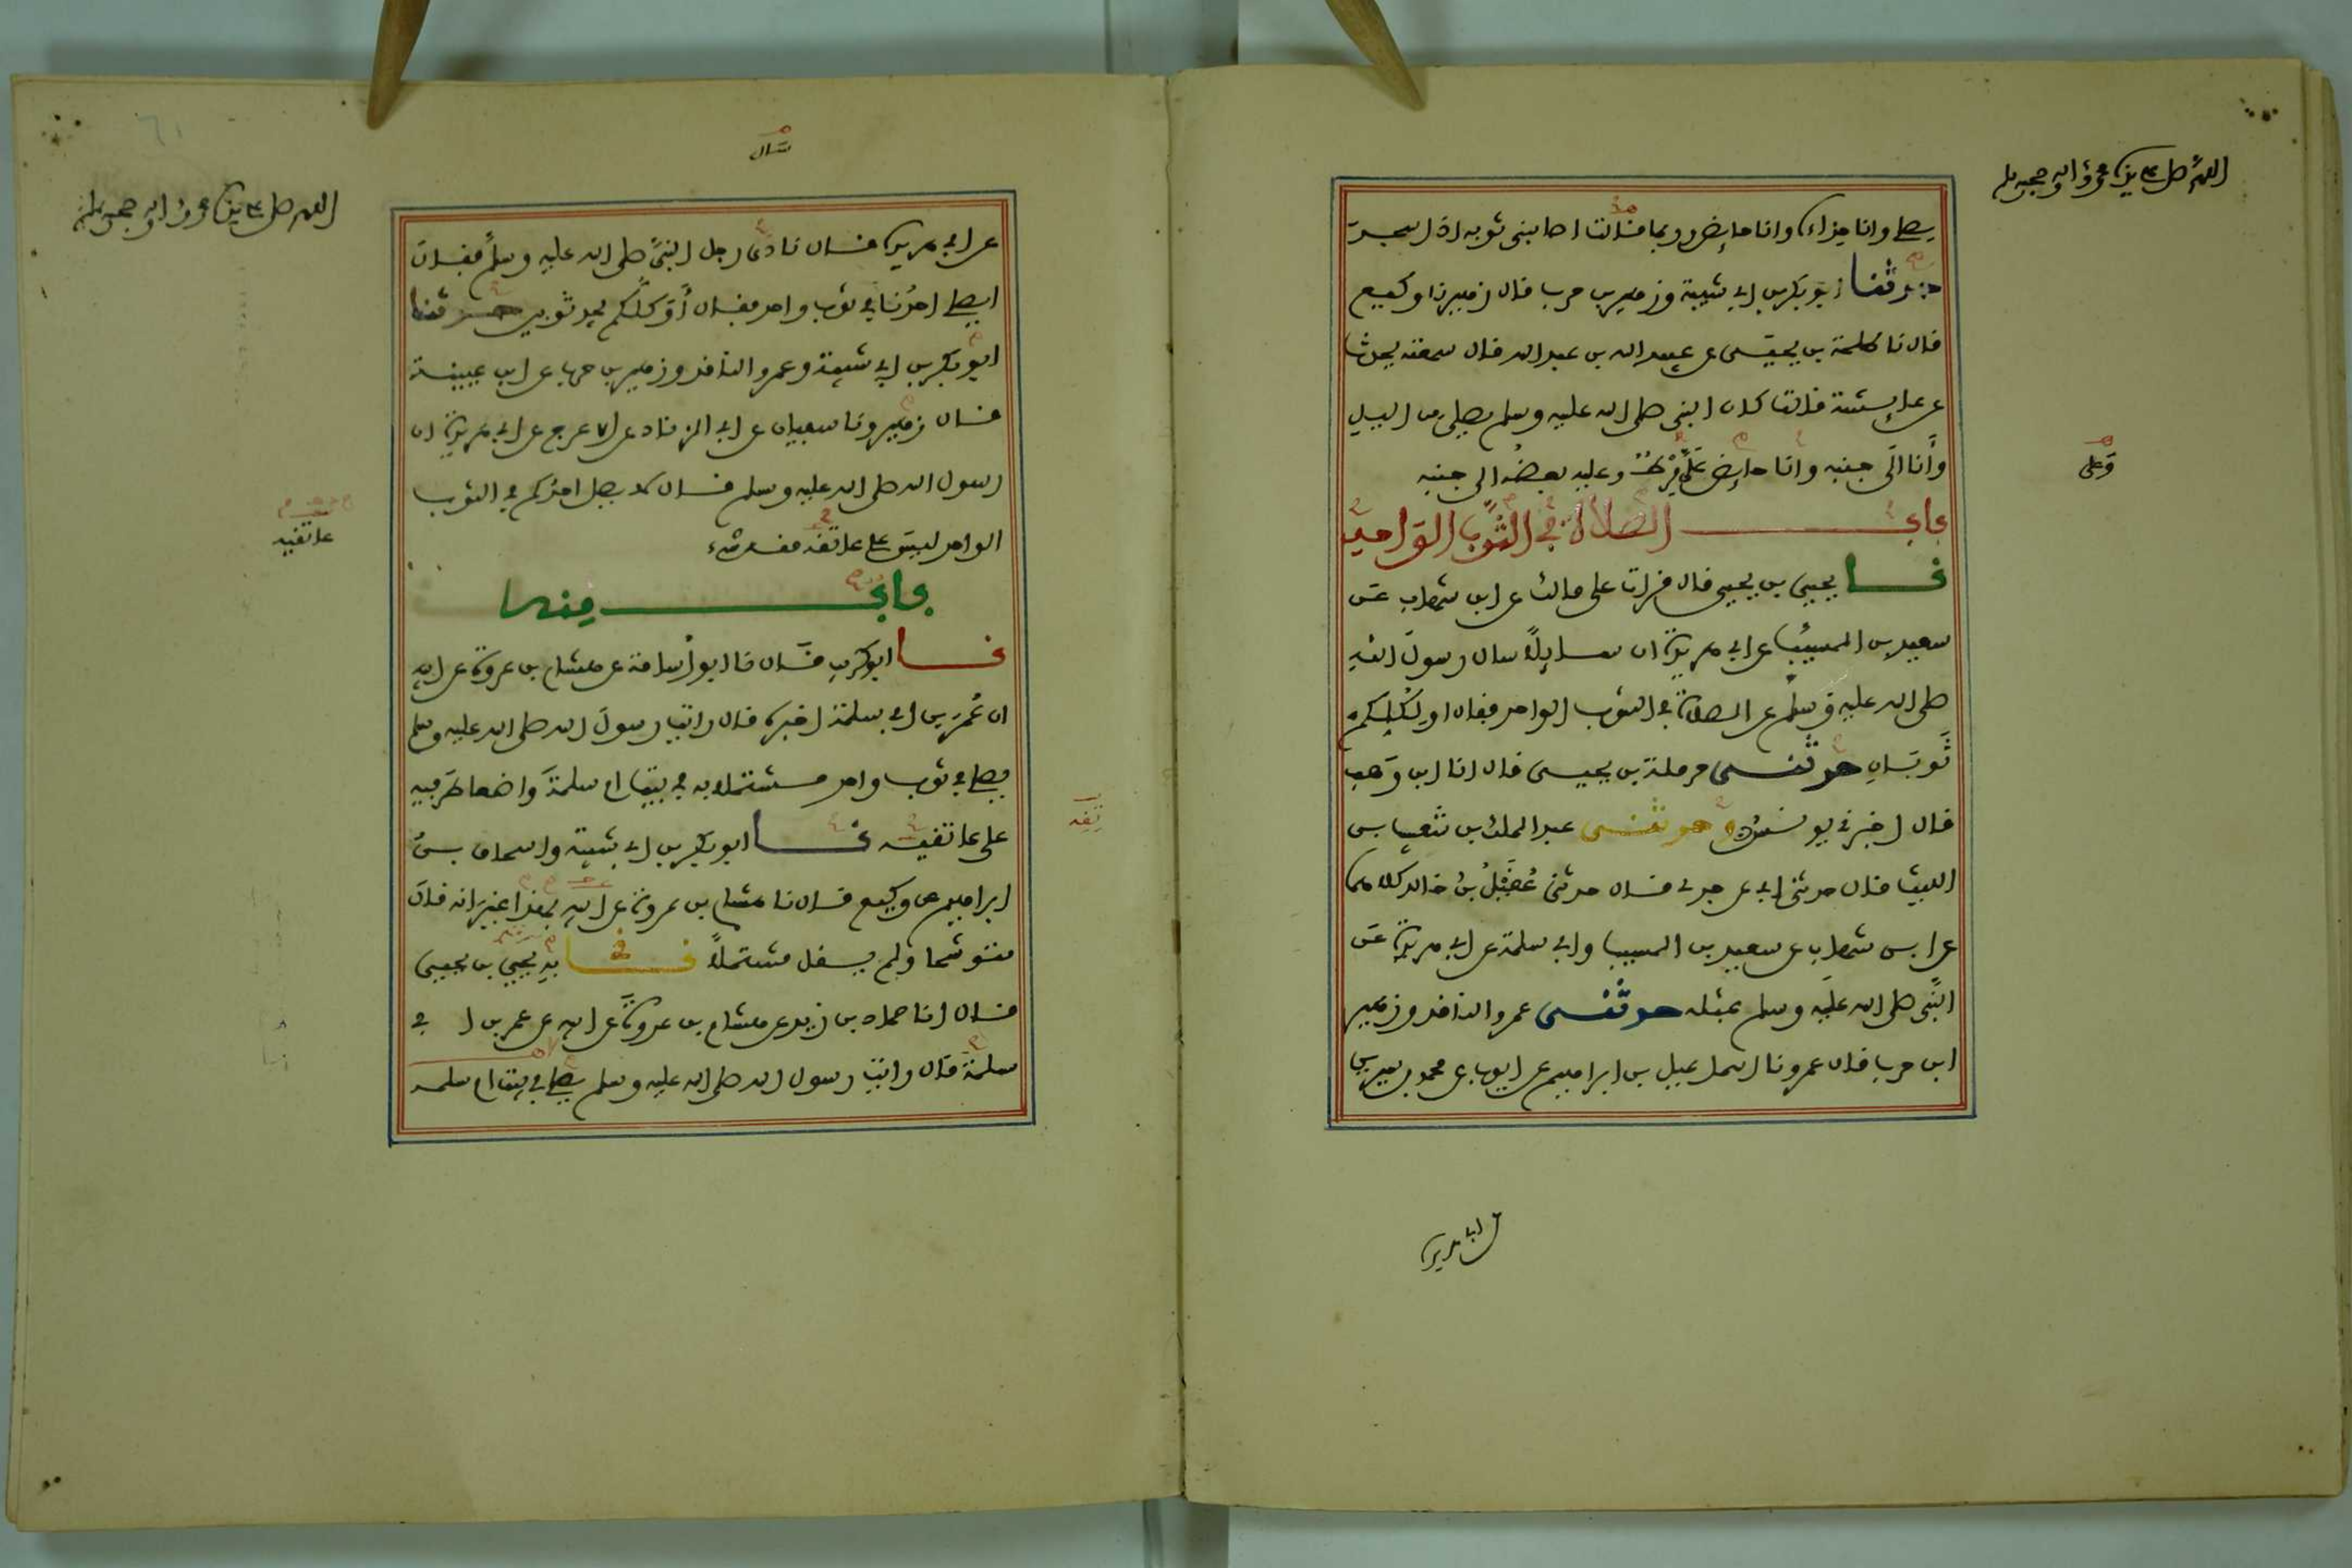 اللهم صل على سيدنا محمد واله وصحبه وسلم
يصلي وانا حذاءه وانا حايض وربما قالت اصابني ثوبه اذا سجد
حدثنا ابو بكر بن ابي شيبة وزهير بن حرب قال زهير نا وكيع
قال نا طلحة بن يحيى عن عبيد الله بن عبد الله قال سمعته يحدثنا
عن عايشة قالت كان النبي صلى الله عليه وسلم يصلي من الليل
وأنا الى جنبه وانا حايض عَلَيَّ مِرْطٌ وعليه بعضُه الى جنبه
وعلى
باب الصلاة في الثوب الواحد
نا يحيى بن يحيى قال قرات على مالك عن ابن شهاب عن
سعيد بن المسيب عن ابي هريرة ان سايلاً سال رسول الله
صلى الله عليه وسلم عن الصلاة في الثوب الواحد فقال اولكلكم
ثَوبَانِ حدثنى حرملة بن يحيى قال انا ابن وَهب
قال اخبرني يونس وحدثنى عبد الملك بن شعيب بن
الليث قال حدثني ابي عن جدي قال حدثني عُقَيْلُ بنُ خالد كلاهما
عن ابن شهاب عن سعيد بن المسيب وابي سلمة عن ابي هريرة عن
النبي صلى الله عليه وسلم بمثله حدثنى عمرو الناقد وزهير
ابن حرب قال عمرو نا اسماعيل بن ابراهيم عن ايوب عن محمد بن سيرين
عن ابي هريرة
اللهم صل على سيدنا محمد واله وصحبه وسلم
سَال
عن ابي هريرة قال نادى رجل النبيَّ صلى الله عليه وسلم فقال
ايصلي احدُنا في ثوب واحد فقال أَوَ كلُّكم يجد ثوبين حدثنا
ابو بكر بن ابي شيبة وعمرو الناقد وزهير بن حرب عن ابن عيينة
قال زهير ونا سفيان عن ابي الزناد عن الاعرج عن ابي هريرة ان
رسول الله صلى الله عليه وسلم قال لا يصل احدكم في الثوب
الواحد ليس على عاتقه منه شيء
عاتقيه
باب منه
نا ابو كريب قال نا ابو اُسامة عن هشام بن عروة عن ابيه
ان عُمَرَ بن ابي سلمة اخبره قال رايت رسول الله صلى الله عليه وسلم
يصلي في ثوب واحد مشتملا به في بيت ام سلمة وَاضعا طَرفيه
على عاتقيه نا ابو بكر بن ابي شيبة واسحاق بنُ
ابراهيم عن وكيع قال نا هشام بن عروة عن ابيه بهذا غير انه قال
متوشحا ولم يقل مشتملاً نا يحيى بن يحيى
قال انا حماد بن زيد عن هشام بن عروة عن ابيه عن عمر بن ابي
سلمة قال رايت رسول الله صلى الله عليه وسلم يصلي في بيت ام سلمه